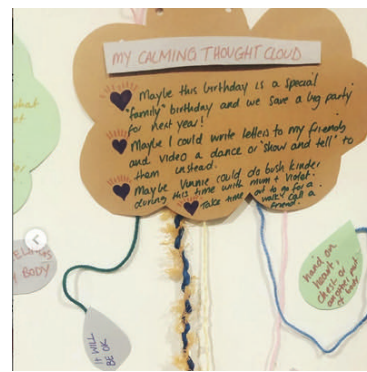 MY CALMING THOUGHT CLOUD
Maybe this birthday is a special
"family" birthday and we save a big party
for next year!
Maybe I could write letters to my friends
and video a dance or "show and tell" to
them instead.
Maybe Vinnie could do bush kinder
during this time with mum + Violet.
Take time out to go for a
walk / call a
friend.
what
ELINGS
BODY
IT WILL
BE OK
hand on
heart,
chest or
another part
of body